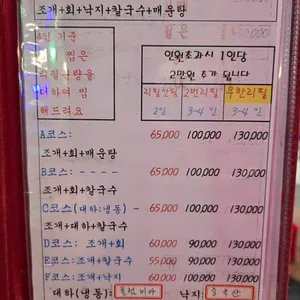 조개+회+낙지+칼국수+매운탕
인원초과시 1인당
2만원 추가 됩니다
리필안됨 2번리필 무한리필
2인 3~4인 3~4인
해드려요
A코스: 65,000 100,000 130,000
조개+회+매운탕
B코스: - - - - 65,000 100,000 130,000
조개+회+칼국수
C코스(대하:냉동) - 65,000 100,000 130,000
조개+대하+칼국수
D코스: 조개+회 60,000 90,000 130,000
E코스: 조개+칼국수 55,000 90,000 130,000
F코스: 조개+낙지 60,000 100,000 130,000
대하(냉동): 낙지: